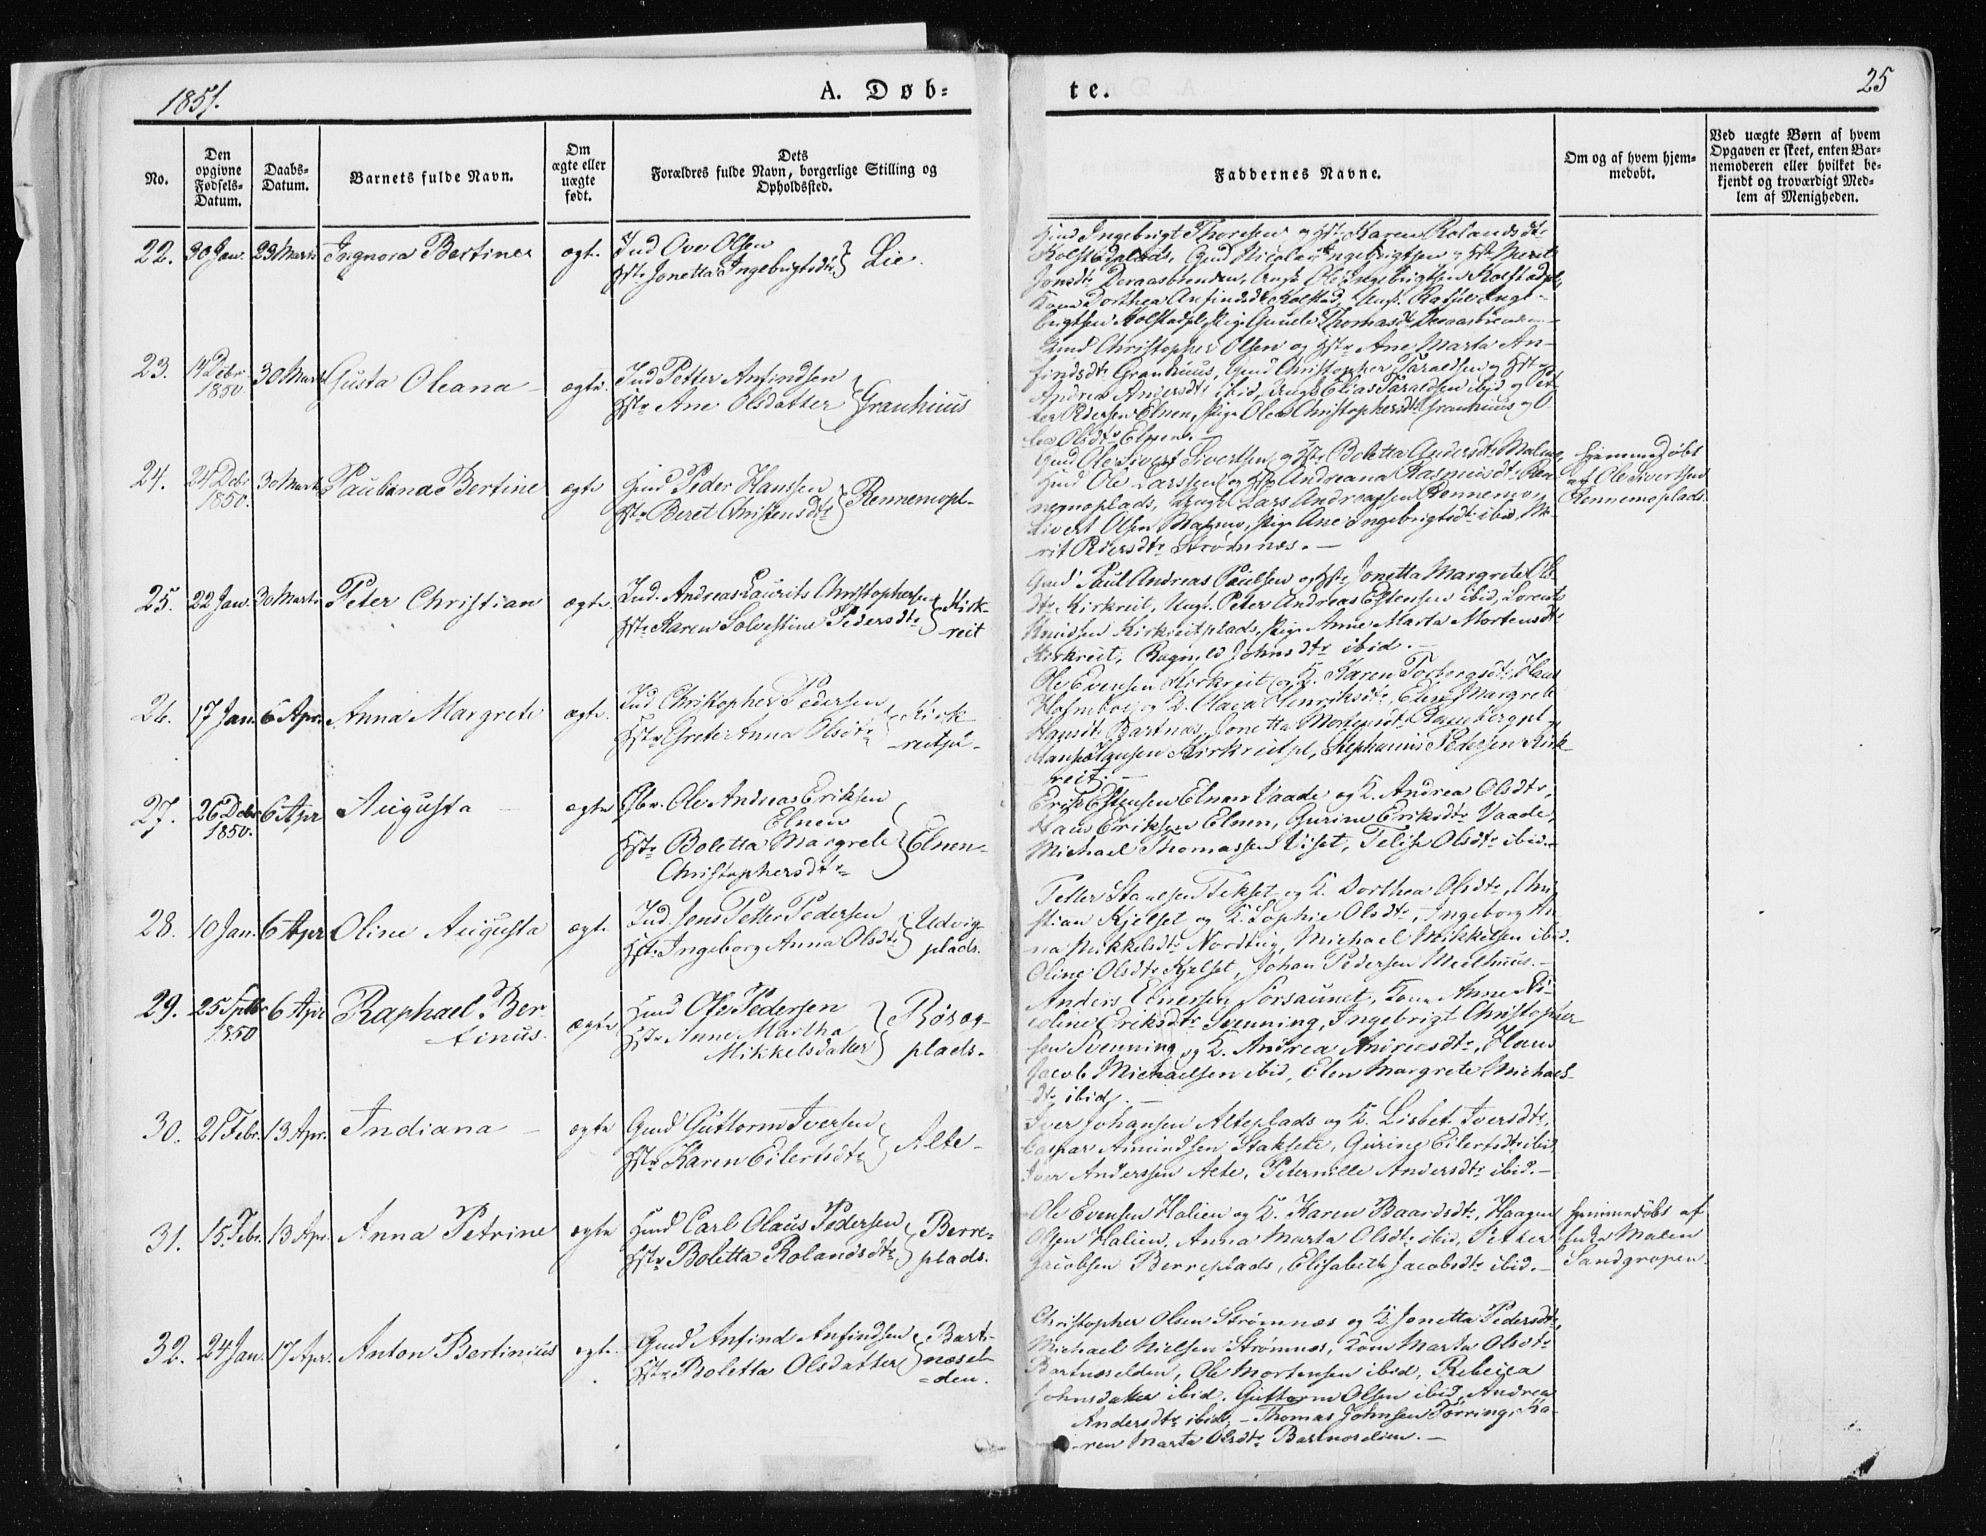 1851.
A. Døb-
te.
25
No.
Den opgivne Fødsels-Datum.
Daabs-Datum.
Barnets fulde Navn.
Om ægte eller uægte født.
Dets Forældres fulde Navn, borgerlige Stilling og Opholdssted.
Faddernes Navne.
Om og af hvem hjem-
medøbt.
Ved uægte Børn af hvem
Opgaven er skeet, enten Bar-
nemoderen eller hvilket be-
kjendt og troværdigt Med-
lem af Menigheden.
22. 30 Jan. 23 Marts Ingnora Bertine ægte Ind Ove Olsen
Hst: Jonetta Ingebrigtsdtr Lie.
Ingebrigt Thoresen og Hst: Karen Rolandsdtr
Nicolai Ingebrigtsen og Hst: Meret
Jonsdtr Deraasbrenden, Ole Ingebrigtsen Kolstadpl,
Dorthea Anfindsdtr Kolstad, Inge-
brigtsen Kolstadpl, Pige Gunele Thomasdtr
23. 14 Debr 1850. 30 Marts Gusta Oleana ægte Ind Petter Anfindsen
Hstr Ane Olsdatter Grauhuus
Gmd Christopher Olsen og Hstr Ane Marta An-
findsdtr Grauhuus, Gmd Christopher Taraldsen og Hstr
Andrea Andersdtr ibid, Ungk Elias Taraldsen ibid og Pet-
ter Pedersen Elnen, Pige Olea Christophersdtr Grauhuus og O-
lea Olsdtr Elnen. —
24. 24 Debr 1850. 30 Marts Pauliana Bertine ægte Hmd Peder Hanssen
Hstr Beret Christensdtr Rennemopl.
Gmd Ole Sivert Sivertsen og Hst: Boletta Andersdtr Malmo,
Hmd Ole Larssen og Hst: Andreana Rasmusdtr Ren-
nemoplads, Ungk Lars Andreassen Rennemo,
Sivert Olsen Malmo, Pige Ane Ingebrigtsdtr ibid, Me-
rit Pedersdtr Strømnæs. —
Hjemmedøbt
af Ole Sivertsen
Rennemoplads
25. 22 Jan. 30 Marts Peter Christian ægte Ind. Andreas Laurits Christophersen
Hstr Karen Solvestine Pedersdtr Kirk-
reit
Gmd Paul Andreas Paulsen og Hst: Jonetta Margrete Ols-
dtr Kirkreit, Ungk: Peter Andreas Estensen ibid, Lorents
Knudsen Kirkreitplads, Pige Anne Marta Mortensdtr
Kirkreit, Ragnild Johnsdtr ibid. —
26. 17 Jan. 6 Apr. Anna Margrete ægte Ind Christopher Pedersen
Hstr Grete Anna Olsdtr Kirk-
reitpl.
Ole Evensen Kirkreit og K. Karen Torbergsdtr, Hans
Holmboe og K. Olava Henriksdtr, Elen Margrete
Hansdtr Bartnæs, Jonetta Mortensdtr
Hans Hansen Kirkreitpl, Stephanus Pedersen Kirk-
reit. —
27. 26 Debr 1850. 6 Apr Augusta — ægte Ole Andreas Eriksen
Elnen
Hstr Boletta Margrete
Christophersdtr Elnen
Erik Estensen Elnen Vaade og K. Andrea Olsdtr,
Hans Eriksen Elnen, Gurine Eriksdtr Vaade,
Michael Thomassen Viset, Telise Olsdtr ibid. —
28. 10 Jan. 6 Apr Oline Augusta ægte Ind. Jens Petter Pedersen
Hstr Ingeborg Anna Olsdtr Udvig-
plads.
Petter Tekset og K. Dorthea Olsdtr, Chri-
stian Kjelset og K. Sophie Olsdtr, Ingeborg An-
na Mikkelsdtr Nordvig, Michael Mikkelsen ibid.
Oline Olsdtr Kjelset, Johan Pedersen Melhuus. —
29. 25 Septbr 1850 6 Apr Raphael Ber-
tinus. ægte Hmd Ole Pedersen
Hstr Anne Martha
Mikkelsdatter Røseg-
plads.
Anders Einersen Sorsaunet, Kone Anne Ni-
coline Eriksdtr Svenning, Ingebrigt Christopher-
sen Svenning og K. Andrea Andreasdtr, Hans
Jacob Michaelsen ibid, Elen Margrete Michaels-
dtr ibid. —
30. 21 Febr. 13 Apr. Indiana — ægte Gmd Guttorm Iversen
Hstr Karen Eilertsdtr Alte-
Iver Johansen Alteplads og K. Lisbet Iversdtr,
Caspar Amundsen Staksete, Gurine Eilertsdtr ibid,
Iver Anderssen Alte, Peternille Andersdtr ibid. —
31. 15 Febr. 13 Apr. Anna Petrine ægte Hmd Carl Olaus Pedersen
Hstr Boletta Rolandsdtr Berre-
plads.
Ole Evensen Halien og K. Karen Baardsdtr, Haagen
Olsen Halien, Anna Marta Olsdtr ibid, Petter
Jacobsen Berreplads, Elisabeth Jacobsdtr ibid. —
Hjemmedøbt af
Malen
Sandgropen.
32. 24 Jan. 17 Apr. Anton Bertinius ægte Gmd Anfind Anfindsen
Hstr Boletta Olsdatter Bart-
næsel-
den.
Christopher Olsen Strømnæs og K. Jonetta Pedersdtr,
Michael Nielsen Strømnæs, Kone Marta Olsdtr
Bartnæselden, Ole Mortensen ibid, Rebecca
Johnsdatter ibid. Guttorm Olsen ibid, Andrea
Andersdtr ibid, — Thomas Johnsen Tørring, Ka-
ren Marta Olsdtr Bartnæselden. —